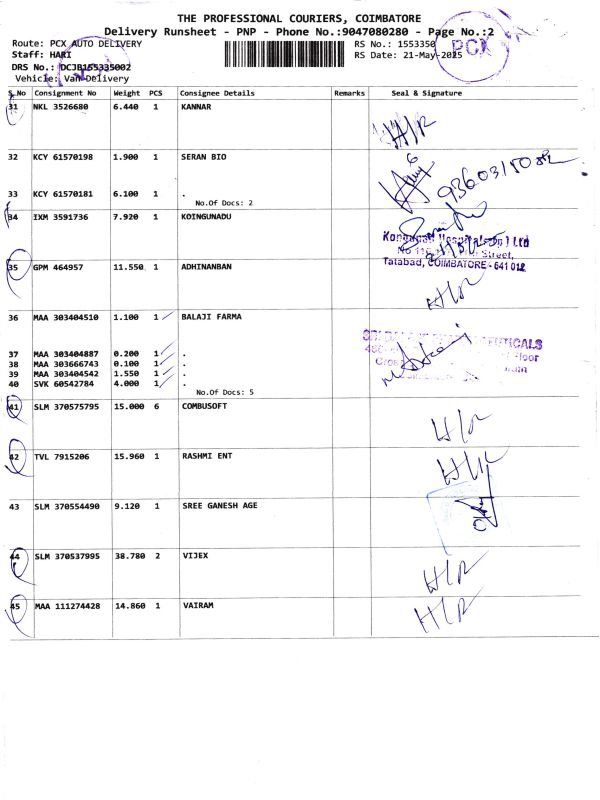 THE PROFESSIONAL COURIERS, COIMBATORE
Delivery Runsheet - PNP - Phone No.:9047080280 - Page No.:2
Route: PCX AUTO DELIVERY
RS No.: 1553350
PCX
Staff: HARI
RS Date: 21-May-2025
DRS No.: DCJB155335002
Vehicle: Van Delivery
S.No Consignment No Weight PCS Consignee Details Remarks Seal & Signature
31 NKL 3526680 6.440 1 KANNAR
H/R
32 KCY 61570198 1.900 1 SERAN BIO
33 KCY 61570181 6.100 1 .
No.Of Docs: 2
34 IXM 3591736 7.920 1 KOINGUNADU
Tatabad, COIMBATORE - 641 012
35 GPM 464957 11.550 1 ADHINANBAN
H/R
36 MAA 303404510 1.100 1 BALAJI FARMA
37 MAA 303404887 0.200 1 .
38 MAA 303666743 0.100 1 .
39 MAA 303404542 1.550 1 .
40 SVK 60542784 4.000 1 .
No.Of Docs: 5
41 SLM 370575795 15.000 6 COMBUSOFT
H/R
42 TVL 7915206 15.960 1 RASHMI ENT
H/R
43 SLM 370554490 9.120 1 SREE GANESH AGE
44 SLM 370537995 38.780 2 VIJEX
H/R
45 MAA 111274428 14.860 1 VAIRAM
H/R